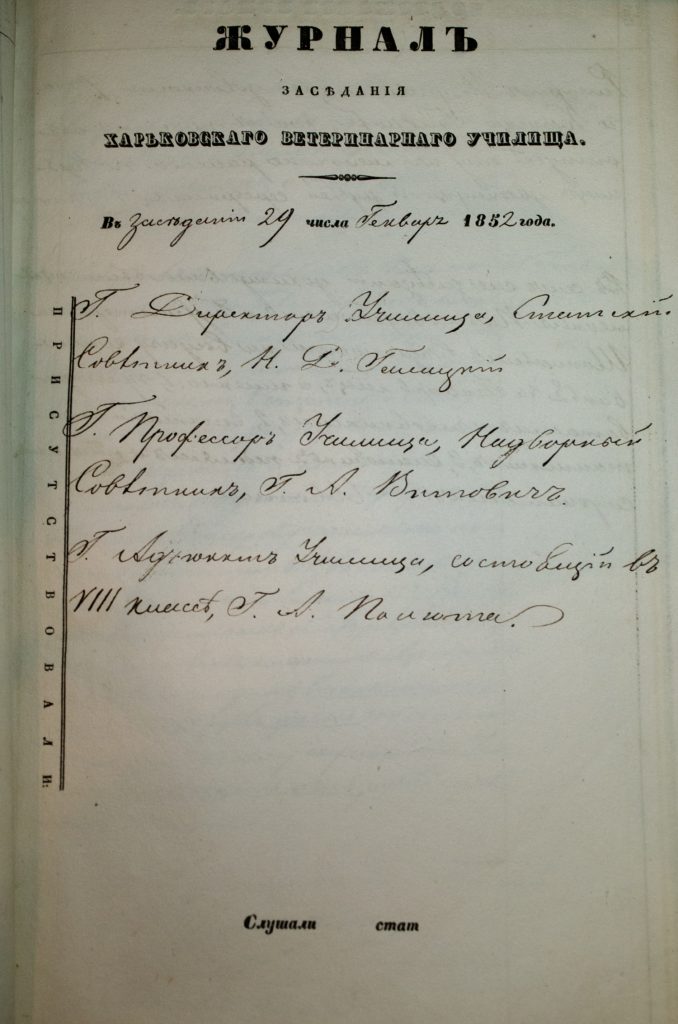 ЖУРНАЛЪ
ЗАСѢДАНІЯ
ХАРЬКОВСКАГО ВЕТЕРИНАРНАГО УЧИЛИЩА.
Въ Засѣданіи 29 числа Генваря 1852 года.
ПРИСУТСТВОВАЛИ:
Г. Директоръ Училища, Статскій
Совѣтникъ, Н. Д. Галицкій
Г. Профессоръ Училища, Надворный
Совѣтникъ, Г. А. Витовичъ.
Г. Адъюнктъ Училища, состоящій въ
VIII классѣ, Г. А. Полюта.
Слушали стат